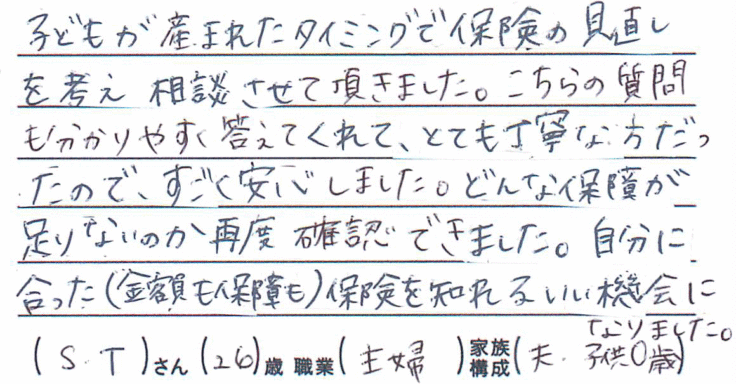 子どもが産まれたタイミングで保険の見直し
を考え 相談させて頂きました。こちらの質問
も分かりやすく答えてくれて、とても丁寧な方だっ
たので、すごく安心しました。どんな保障が
足りないのか再度 確認できました。自分に
合った(金額も保障も)保険を知れるいい機会に
なりました。
(S.T)さん(26)歳 職業(主婦)家族構成(夫.子供0歳)